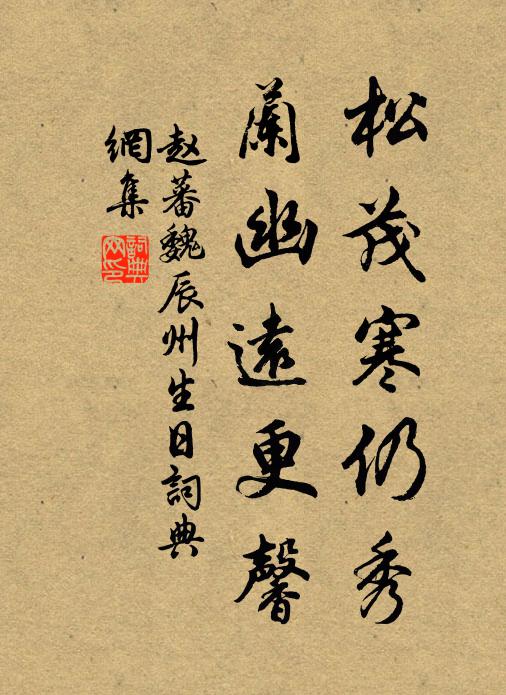 松茂寒仍秀
蘭幽遠更馨
赵蕃魏辰州生日詞典
網集
詞典
网印